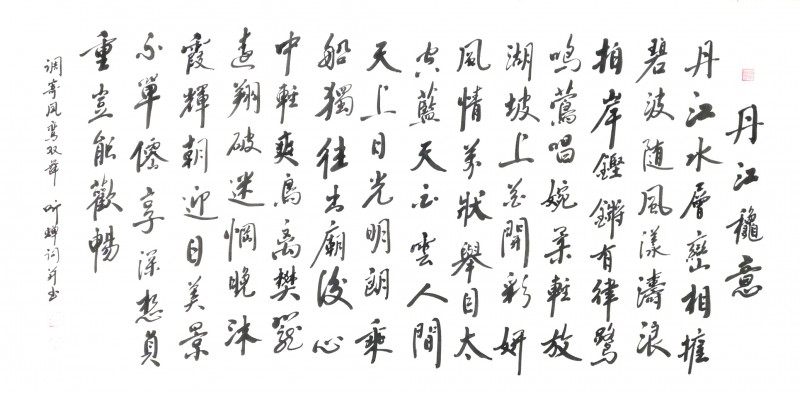 丹江穐意
丹江水層巒相擁
碧波随風漾濤浪
拍岸鏗鏘有律鷺
鳴鶯唱婉柔軽放
湖坡上花開彩妍
風情萬状舉目太
空藍天白雲人間
天上日光明朗乘
船獨往古廟後心
中軽爽鳥离樊籠
遠翔破迷惘晚沐
霞輝朝迎日美景
不單僊享深愁負
重豈能歡暢
调寄凤鸾双舞 听蝉词并书